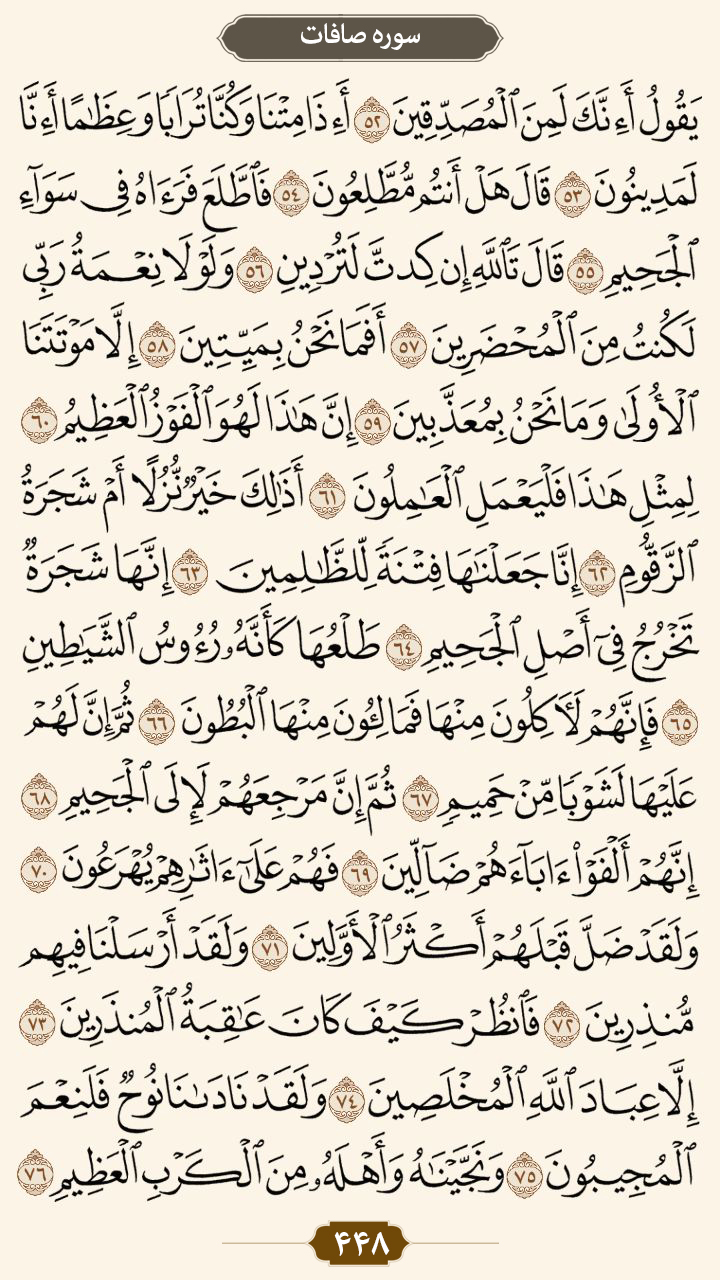 سوره صافات
يَقُولُ أَءِنَّكَ لَمِنَ ٱلْمُصَدِّقِينَ ٥٢ أَءِذَا مِتْنَا وَكُنَّا تُرَابًا وَعِظَٰمًا أَءِنَّا
لَمَدِينُونَ ٥٣ قَالَ هَلْ أَنتُم مُّطَّلِعُونَ ٥٤ فَٱطَّلَعَ فَرَءَاهُ فِى سَوَآءِ
ٱلْجَحِيمِ ٥٥ قَالَ تَٱللَّهِ إِن كِدتَّ لَتُرْدِينِ ٥٦ وَلَوْلَا نِعْمَةُ رَبِّى
لَكُنتُ مِنَ ٱلْمُحْضَرِينَ ٥٧ أَفَمَا نَحْنُ بِمَيِّتِينَ ٥٨ إِلَّا مَوْتَتَنَا
ٱلْأُولَىٰ وَمَا نَحْنُ بِمُعَذَّبِينَ ٥٩ إِنَّ هَٰذَا لَهُوَ ٱلْفَوْزُ ٱلْعَظِيمُ ٦٠
لِمِثْلِ هَٰذَا فَلْيَعْمَلِ ٱلْعَٰمِلُونَ ٦١ أَذَٰلِكَ خَيْرٌ نُّزُلًا أَمْ شَجَرَةُ
ٱلزَّقُّومِ ٦٢ إِنَّا جَعَلْنَٰهَا فِتْنَةً لِّلظَّٰلِمِينَ ٦٣ إِنَّهَا شَجَرَةٌ
تَخْرُجُ فِىٓ أَصْلِ ٱلْجَحِيمِ ٦٤ طَلْعُهَا كَأَنَّهُۥ رُءُوسُ ٱلشَّيَٰطِينِ
٦٥ فَإِنَّهُمْ لَءَاكِلُونَ مِنْهَا فَمَالِـُٔونَ مِنْهَا ٱلْبُطُونَ ٦٦ ثُمَّ إِنَّ لَهُمْ
عَلَيْهَا لَشَوْبًا مِّنْ حَمِيمٍ ٦٧ ثُمَّ إِنَّ مَرْجِعَهُمْ لَإِلَى ٱلْجَحِيمِ ٦٨
إِنَّهُمْ أَلْفَوْا۟ ءَابَآءَهُمْ ضَآلِّينَ ٦٩ فَهُمْ عَلَىٰٓ ءَاثَٰرِهِمْ يُهْرَعُونَ ٧٠
وَلَقَدْ ضَلَّ قَبْلَهُمْ أَكْثَرُ ٱلْأَوَّلِينَ ٧١ وَلَقَدْ أَرْسَلْنَا فِيهِم
مُّنذِرِينَ ٧٢ فَٱنظُرْ كَيْفَ كَانَ عَٰقِبَةُ ٱلْمُنذَرِينَ ٧٣
إِلَّا عِبَادَ ٱللَّهِ ٱلْمُخْلَصِينَ ٧٤ وَلَقَدْ نَادَىٰنَا نُوحٌ فَلَنِعْمَ
ٱلْمُجِيبُونَ ٧٥ وَنَجَّيْنَٰهُ وَأَهْلَهُۥ مِنَ ٱلْكَرْبِ ٱلْعَظِيمِ ٧٦
۴۴۸